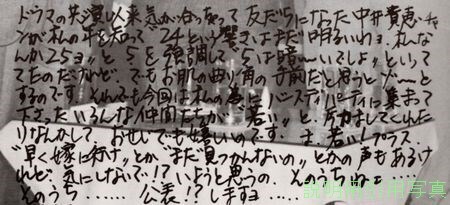 ドラマの共演以来気が合っちゃって友だちになった中井貴恵チャ
ンが私の年を知って"24という響きはまだ明るいわョ、私な
んか25ョ〃と5を強調して"5は暗〜いでしょ〃といっ
てたのだけれど、でもお肌の曲り角の寸前だと思うとゾーッと
するのです。それでも今回は私の為にバースディパーティに集まって
下さったいろんな仲間たちが"若い〃と、力ましてくれた
りなんかして、おせじでも嬉しいのです。は、若い！プラス、
"早く嫁に行け〃とか"まだ見つかんないの〃とかの声もあるけ
れど、気にしないで！？いようと思うの。そのうちねョ……
そのうち……公表！？しますョ……